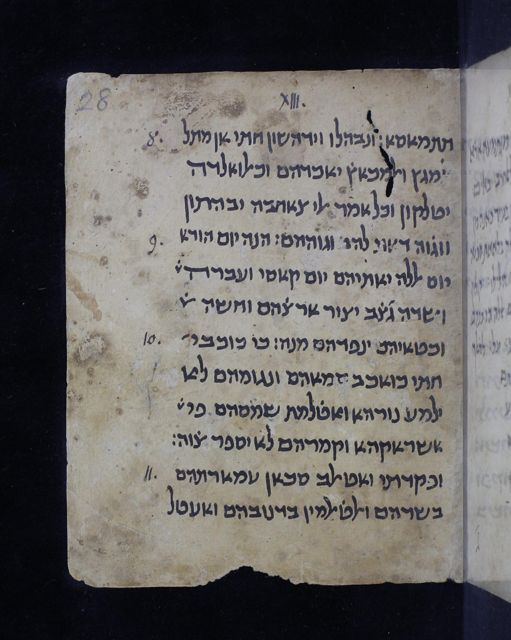 28
XIII.
תתמאסא: ונבהלו וידהשון חתי אן מתל 8.
ימגץ ואלמכאץ יאכדהם וכלואלדה
יטלקון וכל אמר לי צאחבה יבהתון
ווגוה להב וגוההם: הנה יום הודא 9.
יום ללה יאתיהם יום קאסי ועברה
ושדה גצב יצור ארצהם וחשה
וכטאיהם ינפדהם מנהא: כי כוכבי 10.
חתי כואכב סמאהם ונגומהם לא
ילמע נורהא ואטלמת שמסהם פי
אשראקהא וקמרהם לא יספר צוה:
ופקדתי ואטלב סכאן עמארתהם 11.
בשרהם ולטלמין בדנובהם ואעטל